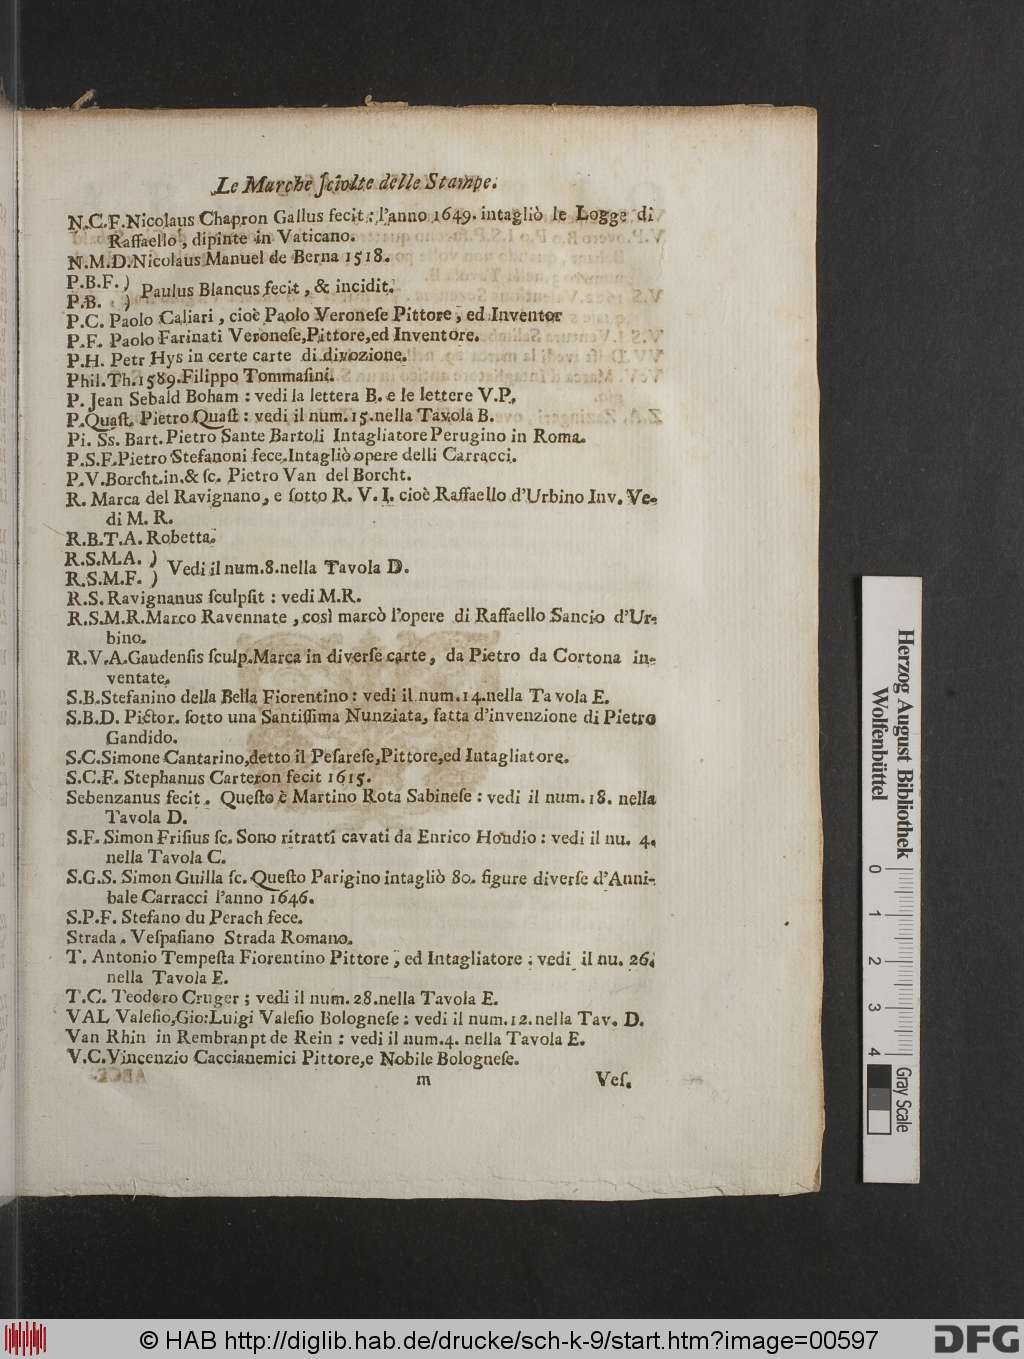 Le Marche ſciolte delle Stampe.
N.C.F.Nicolaus Chapron Gallus fecit : l'anno 1649. intagliò le Logge di
Raffaello , dipinte in Vaticano.
N.M.D.Nicolaus Manuel de Berna 1518.
P.B.F. )
P.B. ) Paulus Blancus fecit , & incidit.
P.C. Paolo Caliari , cioè Paolo Veroneſe Pittore , ed Inventor
P.F. Paolo Farinati Veroneſe,Pittore,ed Inventore.
P.H. Petr Hys in certe carte di divozione.
Phil.Th.1589.Filippo Tommaſini.
P. Jean Sebald Boham : vedi la lettera B. e le lettere V.P.
P.Quaſt. Pietro Quaſt : vedi il num.15.nella Tavola B.
Pi. Ss. Bart. Pietro Sante Bartoli Intagliatore Perugino in Roma.
P.S.F.Pietro Stefanoni fece.Intagliò opere delli Carracci.
P.V.Borcht.in.& ſc. Pietro Van del Borcht.
R. Marca del Ravignano, e ſotto R. V. I. cioè Raffaello d'Urbino Inv. Ve-
di M. R.
R.B.T.A. Robetta.
R.S.M.A. )
R.S.M.F. ) Vedi il num.8.nella Tavola D.
R.S. Ravignanus ſculpſit : vedi M.R.
R.S.M.R.Marco Ravennate , così marcò l'opere di Raffaello Sancio d'Ur-
bino.
R.V.A.Gaudenſis ſculp.Marca in diverſe carte, da Pietro da Cortona in-
ventate.
S.B.Stefanino della Bella Fiorentino : vedi il num.14.nella Tavola E.
S.B.D. Pictor. ſotto una Santiſſima Nunziata, fatta d'invenzione di Pietro
Gandido.
S.C.Simone Cantarino,detto il Peſareſe,Pittore,ed Intagliatore.
S.C.F. Stephanus Carteron fecit 1615.
Sebenzanus fecit . Queſto è Martino Rota Sabineſe : vedi il num. 18. nella
Tavola D.
S.F. Simon Friſius ſc. Sono ritratti cavati da Enrico Hondio : vedi il nu. 4.
nella Tavola C.
S.G.S. Simon Guilla ſc. Queſto Parigino intagliò 80. figure diverſe d'Anni-
bale Carracci l'anno 1646.
S.P.F. Stefano du Perach fece.
Strada . Veſpaſiano Strada Romano.
T. Antonio Tempeſta Fiorentino Pittore , ed Intagliatore : vedi il nu. 26.
nella Tavola E.
T.C. Teodoro Cruger ; vedi il num. 28.nella Tavola E.
VAL Valeſio,Gio:Luigi Valeſio Bologneſe : vedi il num.12.nella Tav. D.
Van Rhin in Rembranpt de Rein : vedi il num.4. nella Tavola E.
V.C.Vincenzio Caccianemici Pittore,e Nobile Bologneſe.
m Veſ.
Herzog August Bibliothek
Wolfenbüttel
0 1 2 3 4
Gray Scale
© HAB http://diglib.hab.de/drucke/sch-k-9/start.htm?image=00597
DFG